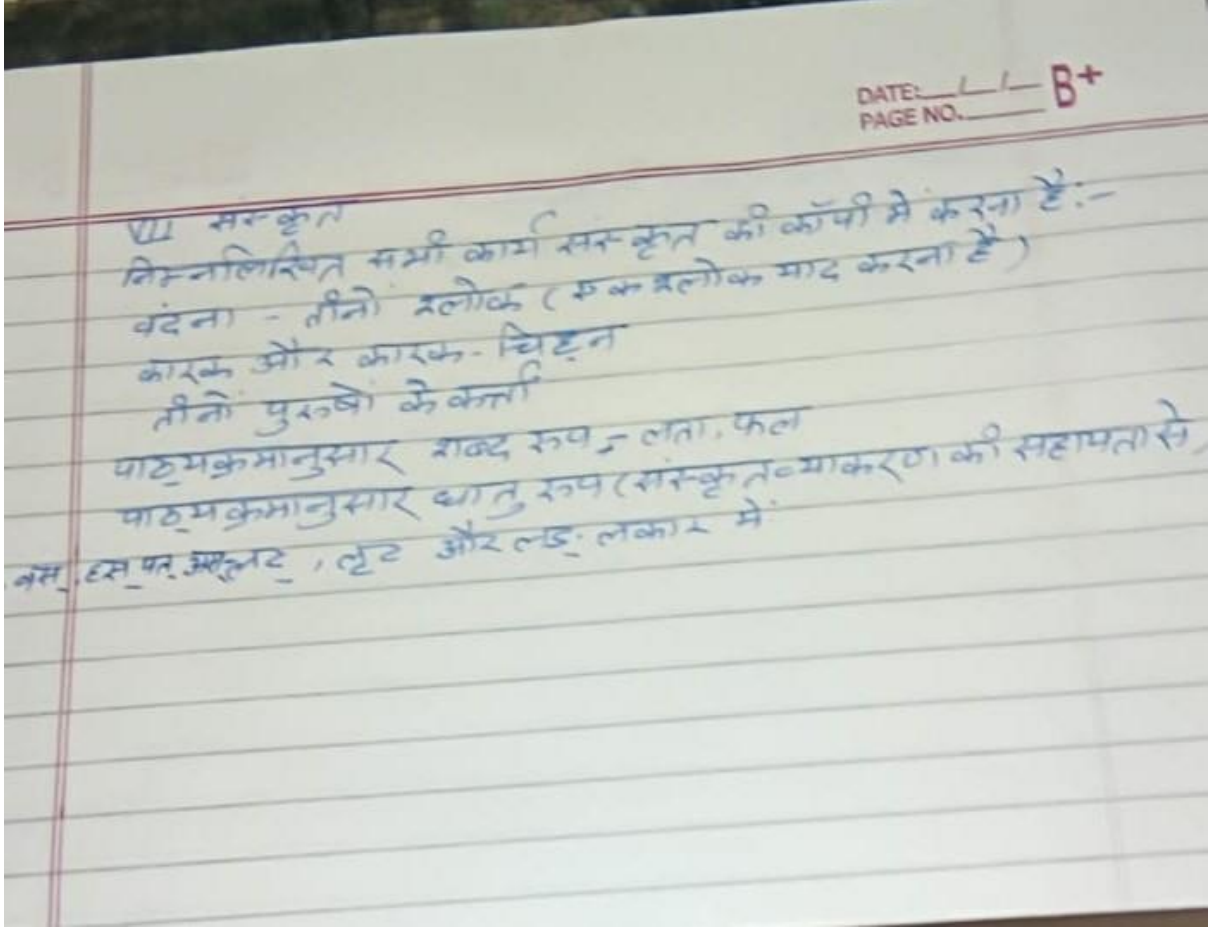 DATE: / /
PAGE NO.
B+
VII संस्कृत
निम्नलिखित सभी कार्य संस्कृत की कॉपी में करना है:-
वंदना - तीनों श्लोक (एक श्लोक याद करना है)
कारक और कारक-चिह्न
तीनों पुरुषों के कर्त्ता
पाठ्यक्रमानुसार शब्द रूप - लता, फल
पाठ्यक्रमानुसार धातु रूप (संस्कृत व्याकरण की सहायता से)
वस्, हस् पत् अस् लट्, लृट और लङ् लकार में